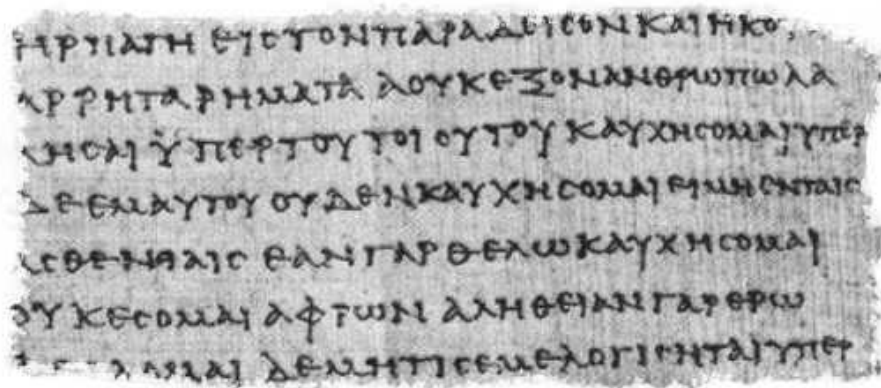 ΗΡΠΑΓΗ ΕΙϹ ΤΟΝ ΠΑΡΑΔΕΙϹΟΝ ΚΑΙ ΗΚΟ
ΑΡΡΗΤΑ ΡΗΜΑΤΑ Α ΟΥΚ ΕΞΟΝ ΑΝΘΡΩΠΩ ΛΑ
ΛΗϹΑΙ ΫΠΕΡ ΤΟΥ ΤΟΙΟΥΤΟΥ ΚΑΥΧΗϹΟΜΑΙ ΥΠΕΡ
ΔΕ ΕΜΑΥΤΟΥ ΟΥΔΕΝ ΚΑΥΧΗϹΟΜΑΙ ΕΙ ΜΗ ΕΝ ΤΑΙϹ
ΑϹΘΕΝΕΙΑΙϹ ΕΑΝ ΓΑΡ ΘΕΛΩ ΚΑΥΧΗϹΟΜΑΙ
ΟΥΚ ΕϹΟΜΑΙ ΑΦΡΩΝ ΑΛΗΘΕΙΑΝ ΓΑΡ ΕΡΩ
ΔΕ ΜΗ ΤΙϹ ΕΜΕ ΛΟΓΙϹΗΤΑΙ ΥΠΕΡ